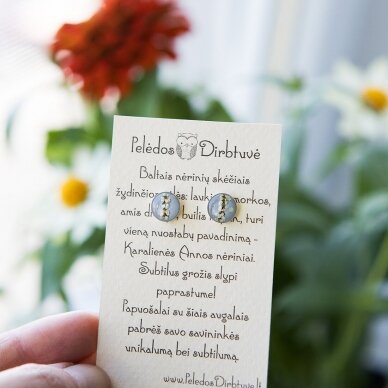 Pelėdos Dirbtuvė
Baltais nėrinių skėčiais
žydinčios lauk morkos,
amis builis turi
vieną nuostabų pavadinimą -
Karalienės Annos nėriniai.
Subtilus grožis slypi
paprastume!
Papuošalai su šiais augalais
pabrėš savo savininkės
unikalumą bei subtilumą.
www.PelėdosDirbtuvė.lt